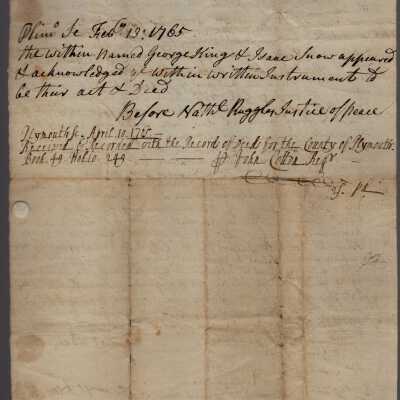 Plimo Sc Febry 12: 1765
the within Named George King & Isaac Snow appeared
& acknowledged ye within written Instrument to
be their act & Deed
Before Nathl Ruggles Justice of peace
Plymouth Sc. April 10. 1765
Received & Recorded with the Records of Deeds for the County of Plymouth.
Book 49 Folio 249
John Cotton Regr